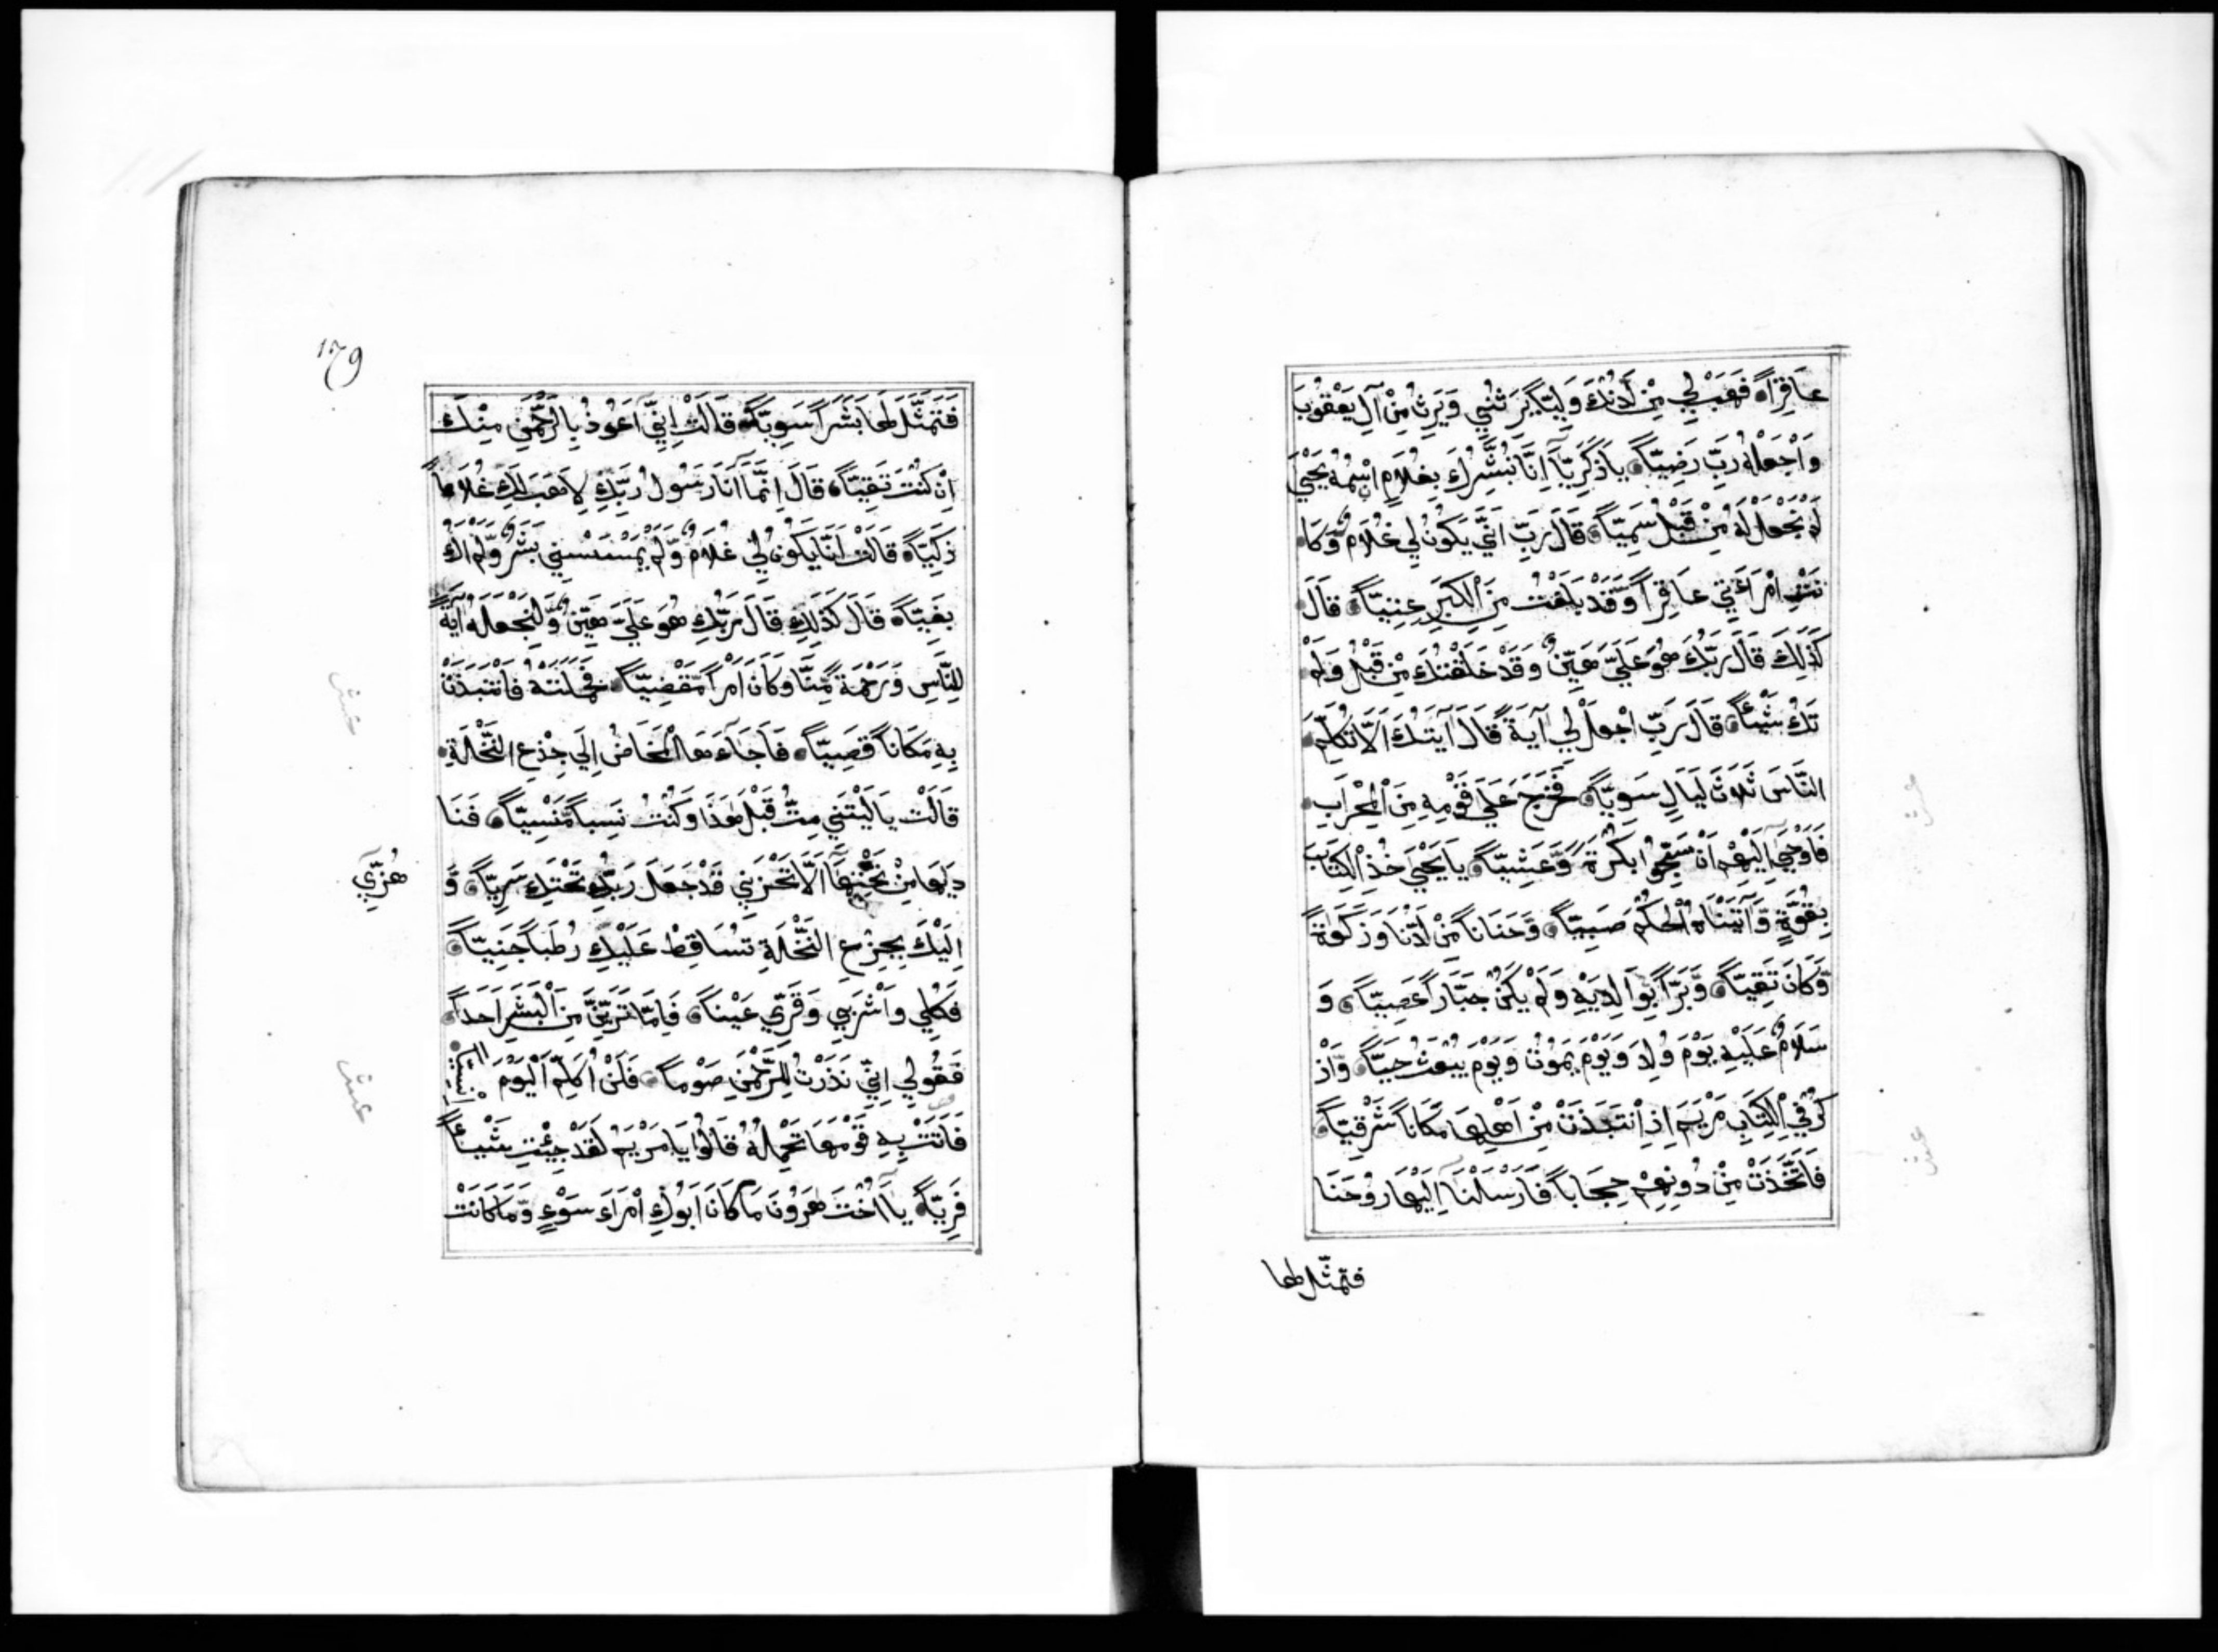 عَاقِرًا فَهَبْ لِي مِنْ لَّدُنْكَ وَلِيًّا يَرِثُنِي وَيَرِثُ مِنْ آلِ يَعْقُوبَ
وَاجْعَلْهُ رَبِّ رَضِيًّا يَا زَكَرِيَّا اِنَّا نُبَشِّرُكَ بِغُلَامِ اسْمُهُ يَحْيَى
لَمْ نَجْعَلْ لَهُ مِنْ قَبْلُ سَمِيًّا قَالَ رَبِّ اَنَّى يَكُونُ لِي غُلَامٌ وَّكَا
نَتِ امْرَأَتِي عَاقِرًا وَّقَدْ بَلَغْتُ مِنَ الْكِبَرِ عِتِيًّا قَالَ
كَذَلِكَ قَالَ رَبُّكَ هُوَ عَلَيَّ هَيِّنٌ وَقَدْ خَلَقْتُكَ مِنْ قَبْلُ وَلَمْ
تَكُ شَيْئًا قَالَ رَبِّ اجْعَلْ لِي آيَةً قَالَ آيَتُكَ اَلَّا تُكَلِّمَ
النَّاسَ ثَلَاثَ لَيَالٍ سَوِيًّا فَخَرَجَ عَلَى قَوْمِهِ مِنَ الْمِحْرَابِ
فَاَوْحَى اِلَيْهِمْ اَنْ سَبِّحُوا بُكْرَةً وَّعَشِيًّا يَا يَحْيَى خُذِ الْكِتَابَ
بِقُوَّةٍ وَّآتَيْنَاهُ الْحُكْمَ صَبِيًّا وَّحَنَانًا مِّنْ لَّدُنَّا وَزَكَوةً
وَّكَانَ تَقِيًّا وَّبَرًّا بِوَالِدَيْهِ وَلَمْ يَكُنْ جَبَّارًا عَصِيًّا وَ
سَلَامٌ عَلَيْهِ يَوْمَ وُلِدَ وَيَوْمَ يَمُوتُ وَيَوْمَ يُبْعَثُ حَيًّا وَّاذْ
كُرْ فِي الْكِتَابِ مَرْيَمَ اِذِ انْتَبَذَتْ مِنْ اَهْلِهَا مَكَانًا شَرْقِيًّا
فَاتَّخَذَتْ مِنْ دُونِهِمْ حِجَابًا فَاَرْسَلْنَا اِلَيْهَا رُوحَنَا
فتمثّل لها
179
فَتَمَثَّلَ لَهَا بَشَرًا سَوِيًّا قَالَتْ اِنِّي اَعُوذُ بِالرَّحْمَنِ مِنْكَ
اِنْ كُنْتَ تَقِيًّا قَالَ اِنَّمَا اَنَا رَسُولُ رَبِّكِ لِاَهَبَ لَكِ غُلَامًا
زَكِيًّا قَالَتْ اَنَّا يَكُونُ لِي غُلَامٌ وَّلَمْ يَمْسَسْنِي بَشَرٌ وَّلَمْ اَكُ
بَغِيًّا قَالَ كَذَلِكِ قَالَ رَبُّكِ هُوَ عَلَيَّ هَيِّنٌ وَّلِنَجْعَلَهُ آيَةً
لِلنَّاسِ وَرَحْمَةً مِّنَّا وَكَانَ اَمْرًا مَّقْضِيًّا فَحَمَلَتْهُ فَانْتَبَذَتْ
بِهِ مَكَانًا قَصِيًّا فَاَجَاءَهَا الْمَخَاضُ اِلَى جِذْعِ النَّخْلَةِ
قَالَتْ يَا لَيْتَنِي مِتُّ قَبْلَ هَذَا وَكُنْتُ نَسِيًا مَّنْسِيًّا فَنَا
دَيهَا مِنْ تَحْتِهَا اَلَّا تَحْزَنِي قَدْ جَعَلَ رَبُّكِ تَحْتَكِ سَرِيًّا وَّ
هُزِّي
اِلَيْكَ بِجِزْعِ النَّخْلَةِ تُسَاقِطْ عَلَيْكِ رُطَبًا جَنِيًّا
فَكُلِي وَاشْرَبِي وَقَرِّي عَيْنًا فَاِمَّا تَرَيِنَّ مِنَ الْبَشَرِ اَحَدًا
فَقُولِي اِنِّي نَذَرْتُ لِلرَّحْمَنِ صَوْمًا فَلَنْ اُكَلِّمَ الْيَوْمَ
فَاَتَتْ بِهِ قَوْمَهَا تَحْمِلُهُ قَالُوا يَا مَرْيَمُ لَقَدْ جِئْتِ شَيْئًا
فَرِيًّا يَا اُخْتَ هَرُونَ مَا كَانَ اَبُوكِ امْرَاَ سَوْءٍ وَّمَا كَانَتْ